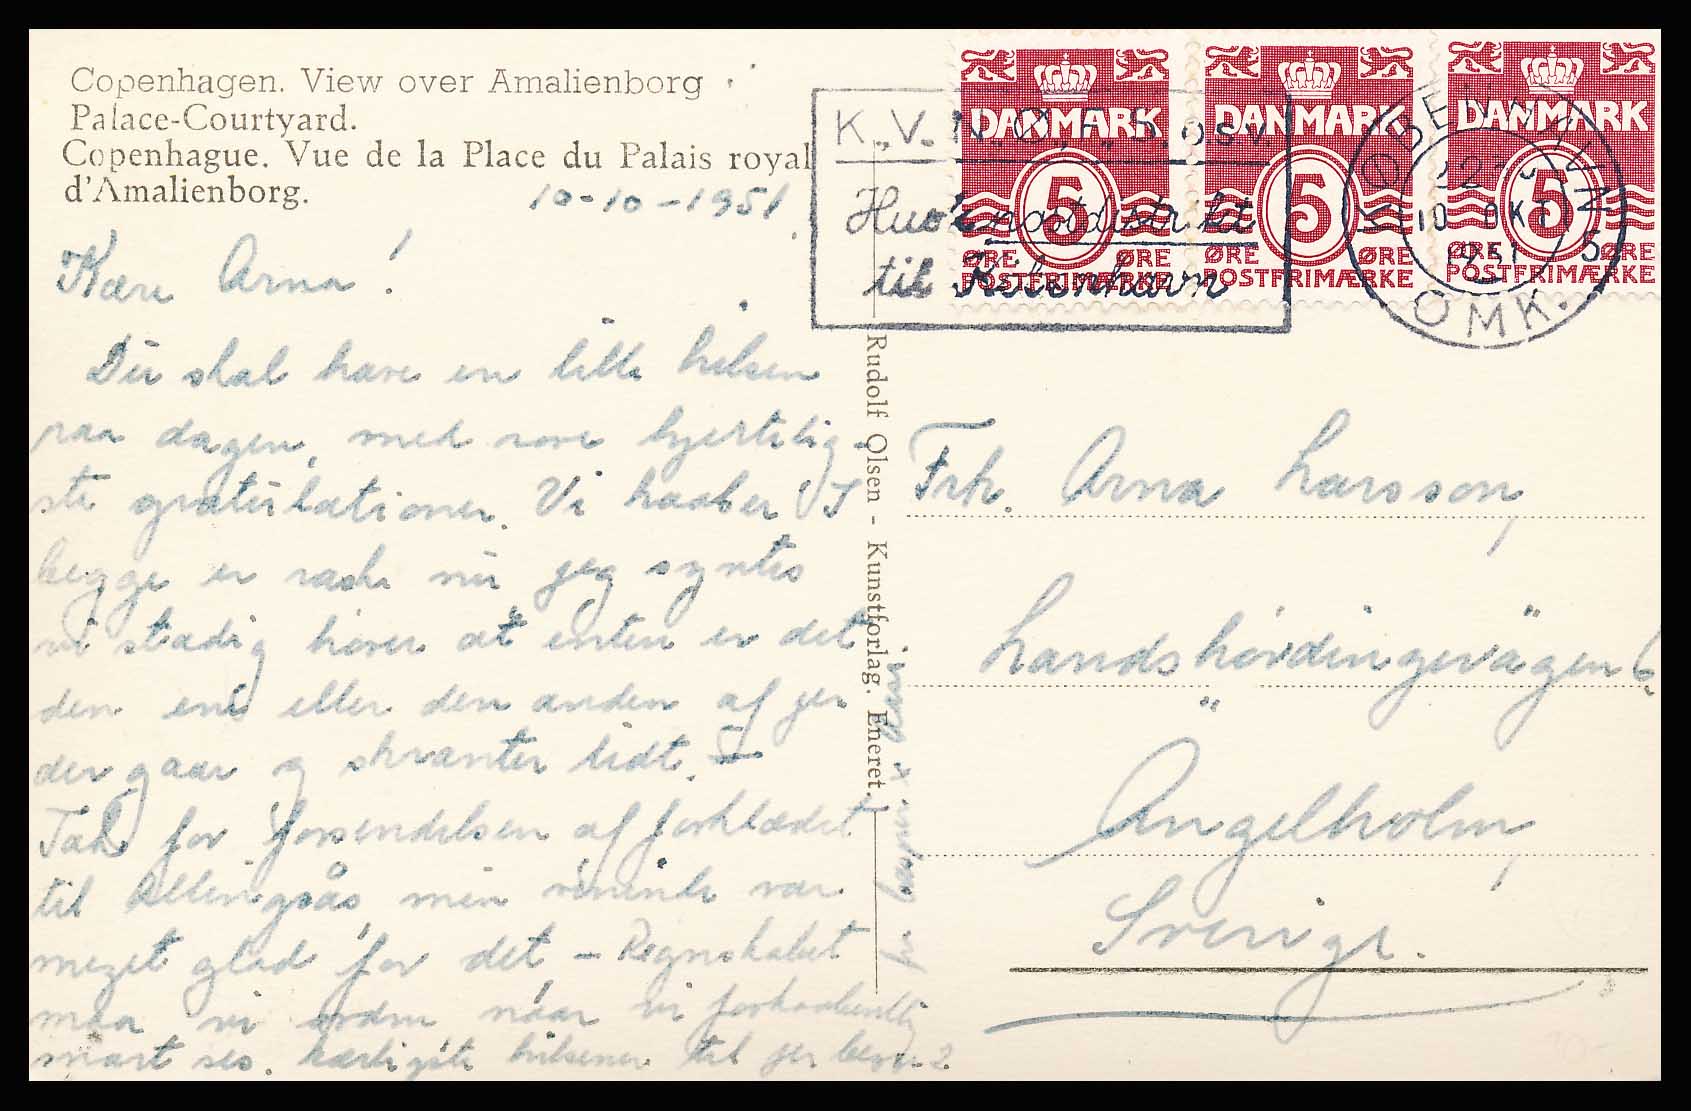 Copenhagen. View over Amalienborg
Palace-Courtyard.
Copenhague. Vue de la Place du Palais royal
d'Amalienborg.
10-10-1951
Kære Arna!
Du skal have en lille hilsen
paa dagen, med vore hjertelig-
ste gratulationer. Vi haaber I
begge er raske nu jeg syntes
vi stadig hører at enten er det
den ene eller den anden af jer
der gaar og skranter lidt. –
Tak for forsendelsen af forklædet
til Allingsås min veninde var
meget glad for det – Regnskabet
maa vi ordne naar vi forhaabentlig
snart ses. Kærligste hilsener til jer begge 2.
fra
Rudolf Olsen - Kunstforlag. Eneret.
K., V., N., Ø., F., S. o.s.v.
Husk postdistrikt
til København
DANMARK
5
ØRE ØRE
POSTFRIMÆRKE
DANMARK
5
ØRE ØRE
POSTFRIMÆRKE
DANMARK
5
ØRE ØRE
POSTFRIMÆRKE
KØBENHAVN 5
10. OKT
1951
OMK.
Frk. Arna Larsson,
Landshövdingevägen 6.
Ängelholm,
Sverige.